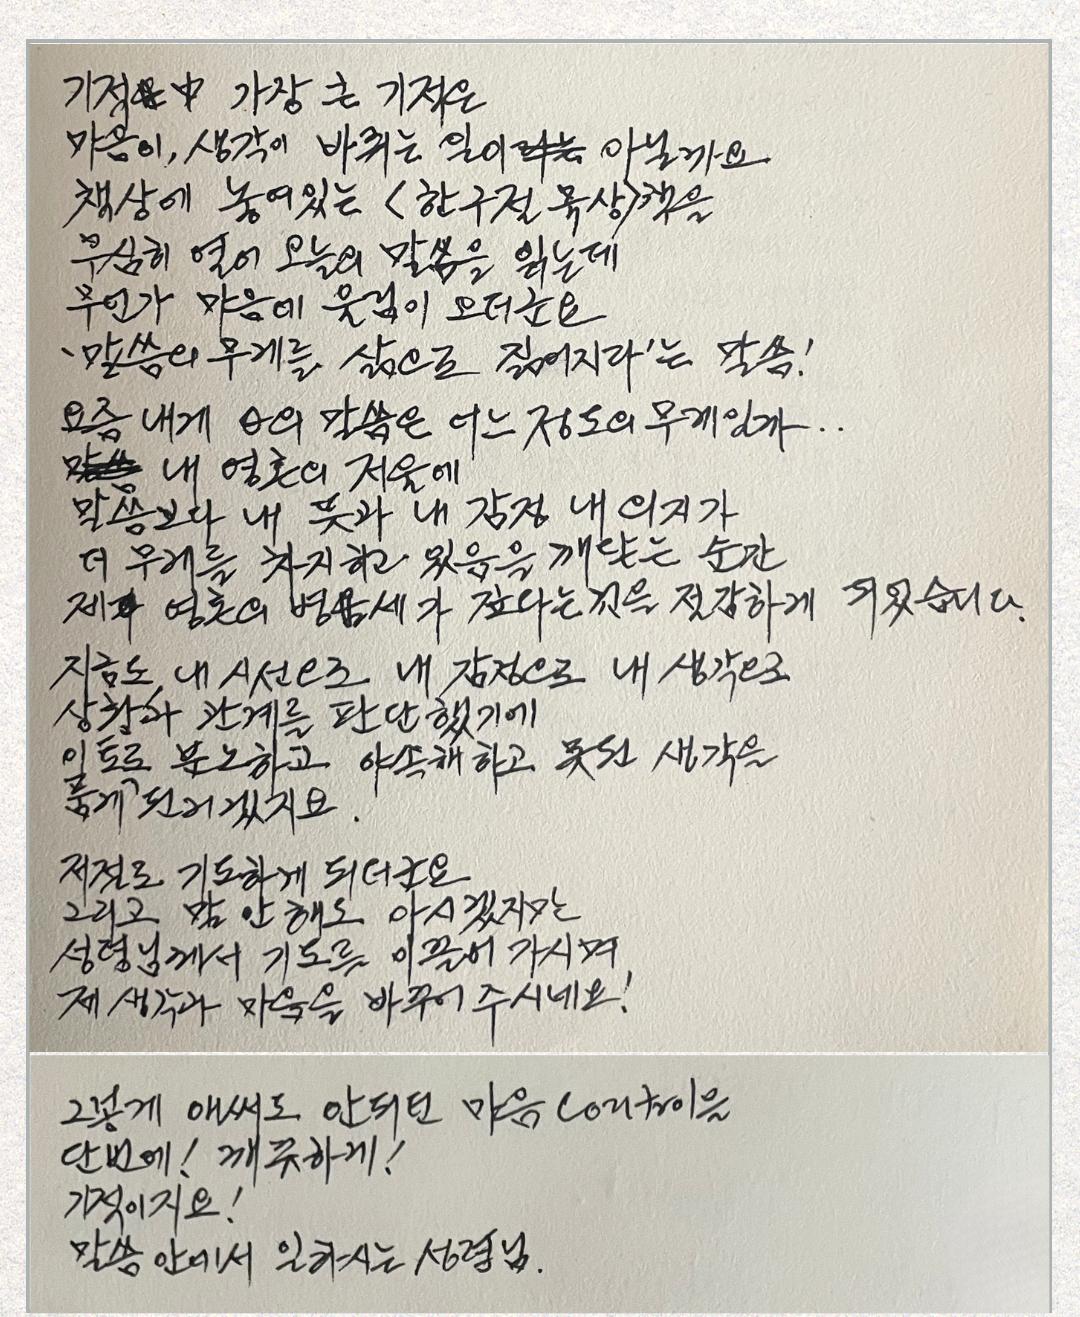 기적 中 가장 큰 기적은
마음이, 생각이 바뀌는 일이 아닐까요
책상에 놓여있는 <한구절 묵상>책을
무심히 열어 오늘의 말씀을 읽는데
무언가 마음에 울림이 오더군요
'말씀의 무게를 삶으로 짊어지라'는 말씀!
요즘 내게 의 말씀은 어느 정도의 무게일까..
내 영혼의 저울에
말씀보다 내 뜻과 내 감정 내 의지가
더 무게를 차지하고 있음을 깨닫는 순간
제 영혼의 병 세가 깊다는것을 직감하게 되었습니다.
지금도, 내 시선으로 내 감정으로 내 생각으로
상황과 관계를 판단했기에
이토록 분노하고 야속해하고 못된 생각을
품게 된거겠지요.
저절로 기도하게 되더군요
그리고 말 안해도 아시겠지만
성령님께서 기도를 이끌어 가시며
제 생각과 마음을 바꾸어 주시네요!
그렇게 애써도 안되던 마음 control을
단번에! 깨끗하게!
기적이지요!
말씀 안에서 일하시는 성령님.